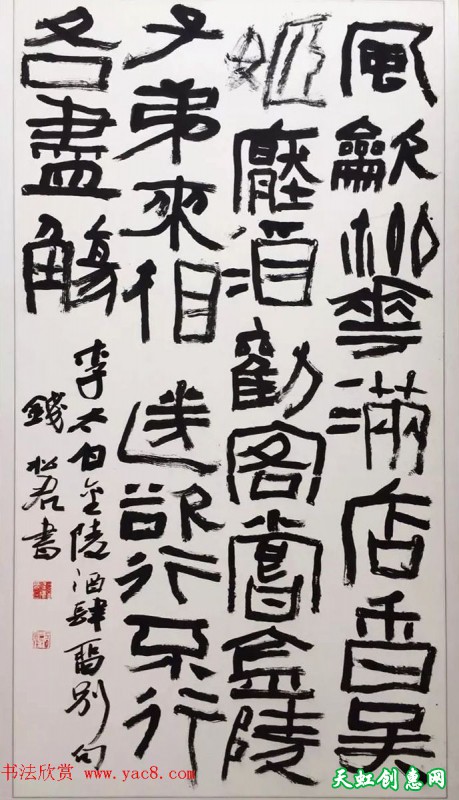 風龡柳華滿店香吳
姬壓酒勸客嘗金陵
子弟來相送欲行不行
各盡觴
李太白金陵酒肆畱別句
錢松君書
书法欣赏 www.yac8.com
天虹创惠网